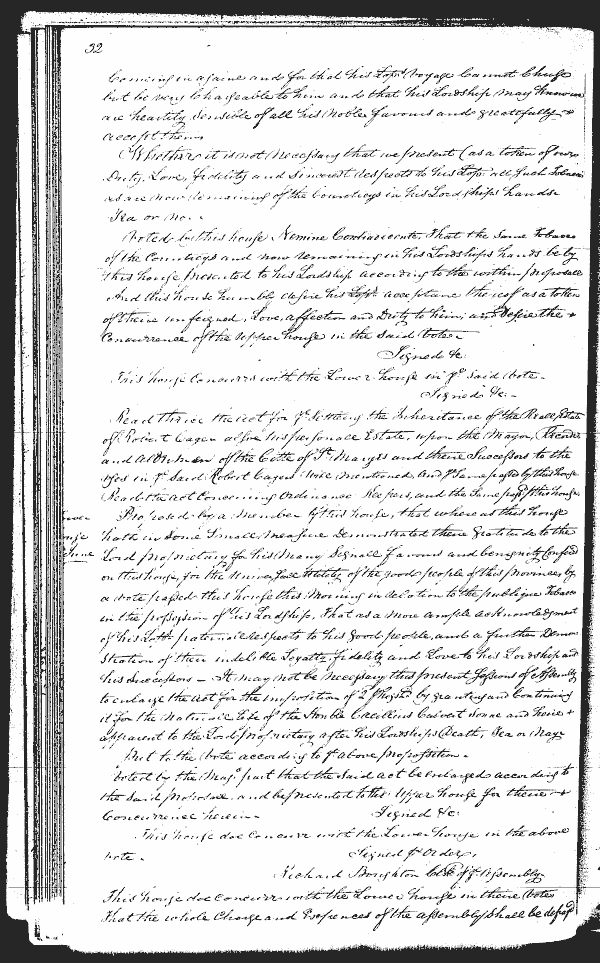 32
Coming in againe and for that his Lopps Voyage Cannot Chuse
but be very Chargeable to him and that his Lordship may know we
are heartily sensible of all his Noble favours and greatefully
accept them
Whether it is not Necessary that we present (as a token of our
Duty, Love, fidelity and sincerest respects to his Lopp all such Tobacco
as are now remaining of the Countreys in his Lordships hands
Yea or No.
Voted by this house Nemine Contradicente That the same Tobacco
of the Countreys and now remaining in his Lordships hands be by
this house presented to his Lordship according to the within proposall
And this house humbly desire his Lopps acceptance thereof as a token
of theire unfeigned Love, affection and Duty to him, and Desire the
Concurrence of the Upper house in the said Vote
Signed &c
This house Concurrs with the Lower house in ye said Vote.
Signed &c.
Read thrice the Act for ye Settling the Inheritance of the Reall Estate
of Robert Cager also his personall Estate, upon the Mayor, Recorder
and Aldermen of the Citte of St Maryes and there Successors to the
uses in ye said Robert Cagers Will mentioned And ye Same past by this house
Read the Act Concerning Ordinance Keepers, and the Same past this house
Proposed by a Member of this house, that where as this house
hath in Some Small measure Demonstrated there Gratitude to the
Lord proprietary for his Many Signall favours and benignity Conferred
on this house, for the Universall Utility of the good people of this Province by
a Vote passed this house this Morning in relation to the publique Tobacco
in the possession of his Lordship, That as a more ample acknowledgment
of his Lopps paternall respects to his good people, and a further Demon
stration of their indelible Loyalty, fidelity and Love to his Lordship and
his Successors - It may not be Necessary this present Sessions of Assembly
to enlarge the Act for the imposition of 2 shill by granting and Continuing
it for the Naturall life of the Honble Caecilius Calvert Sonne and heire
apparent to the Lord proprietary after his Lordships Death, Yea or Nay
Put to the Vote according to ye above proposition.
Voted by the Major part that the said Act be enlarged according to
the said proposall, and be presented to the Upper house for there
Concurrence herein
Signed &c.
This house doe Concurr with the Lower house in the above
Vote.
Signed pr Order,
Richard Boughton Clk of ye Assembly
This house doe Concurr with the Lower house in there Vote
That the whole Charge and Expences of the Assembly shall be defray